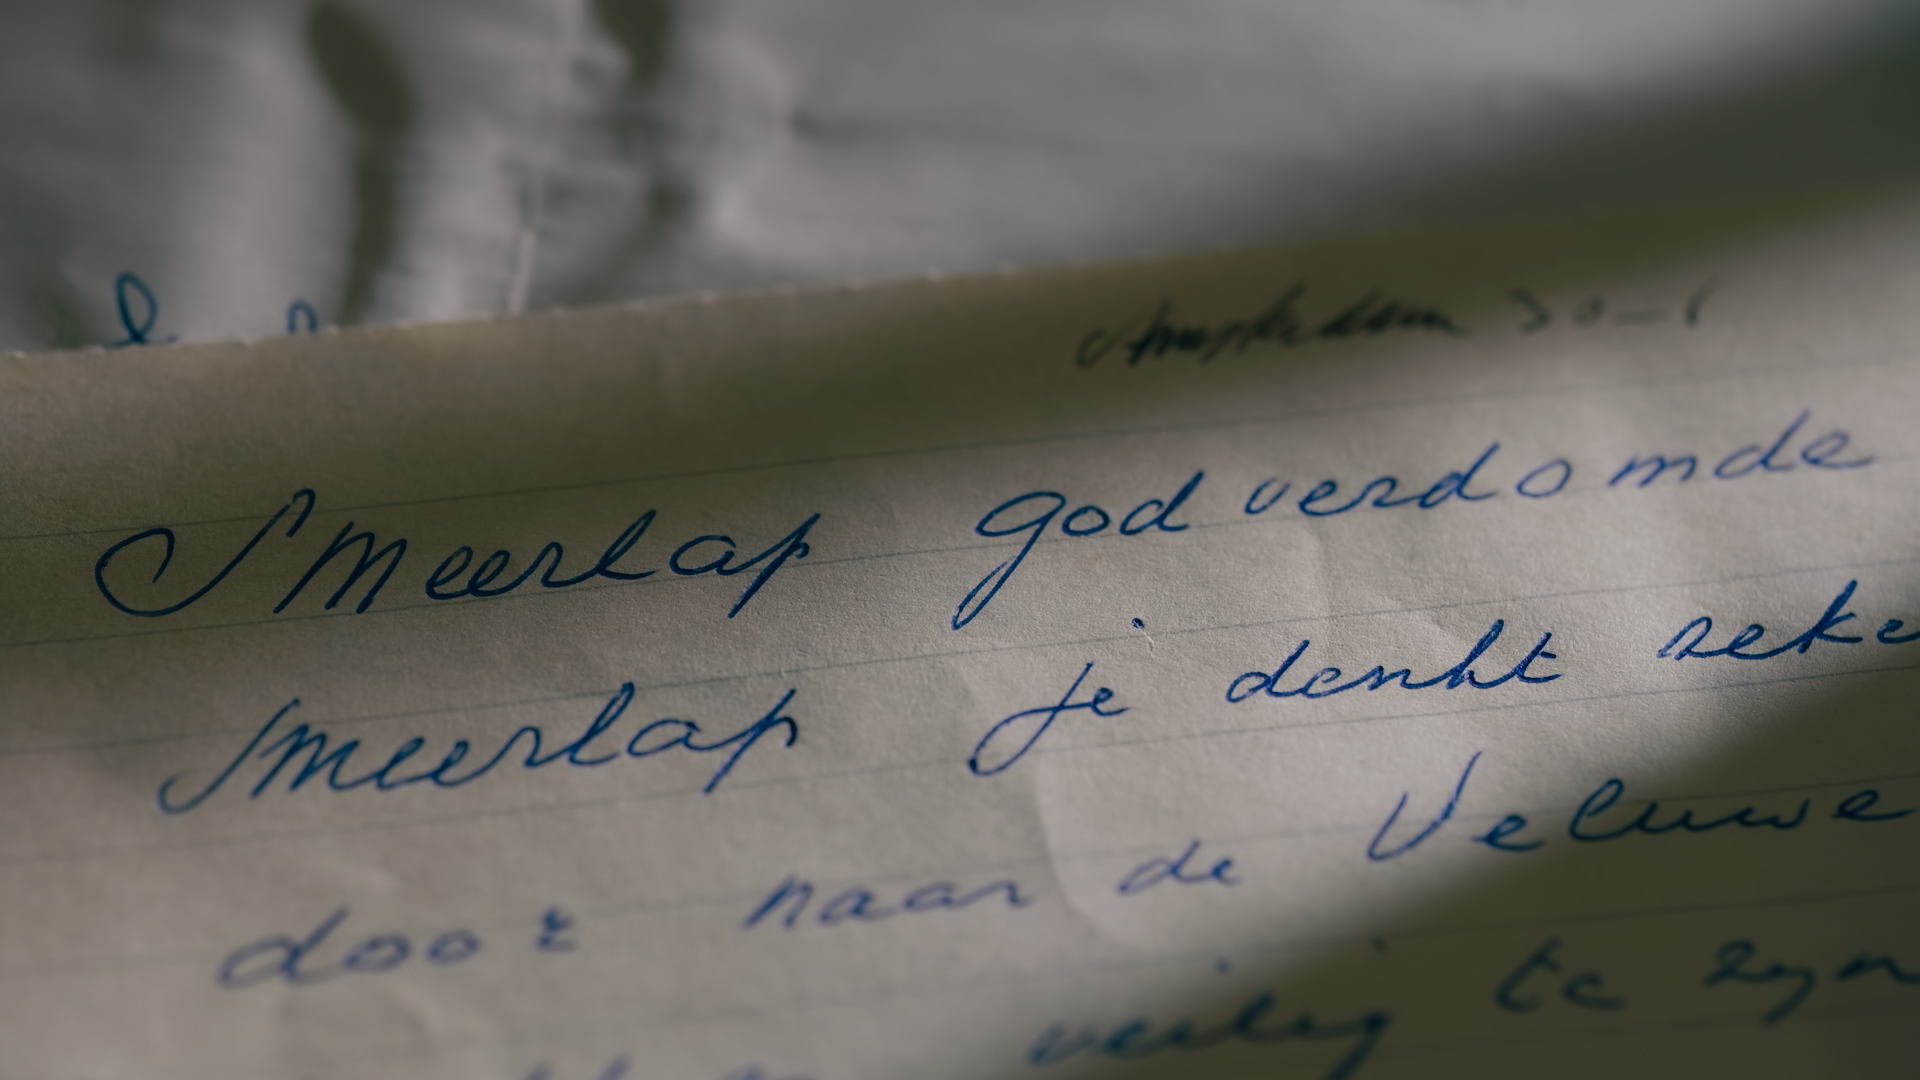 Amsterdam 30-
Smeerlap godverdomde
smeerlap je denkt zeke
door naar de Veluwe
veilig te zyn